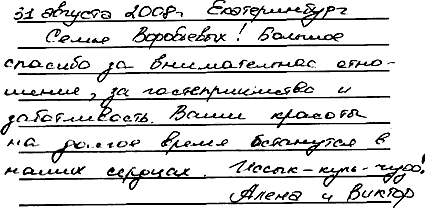 31 августа 2008г Екатеринбург
Семье Воробьевых! Большое
спасибо за внимательное отно-
шение, за гостеприимство и
заботливость. Ваши красоты
на долгое время останутся в
наших сердцах. Иссык-куль-чудо!
Алена и Виктор